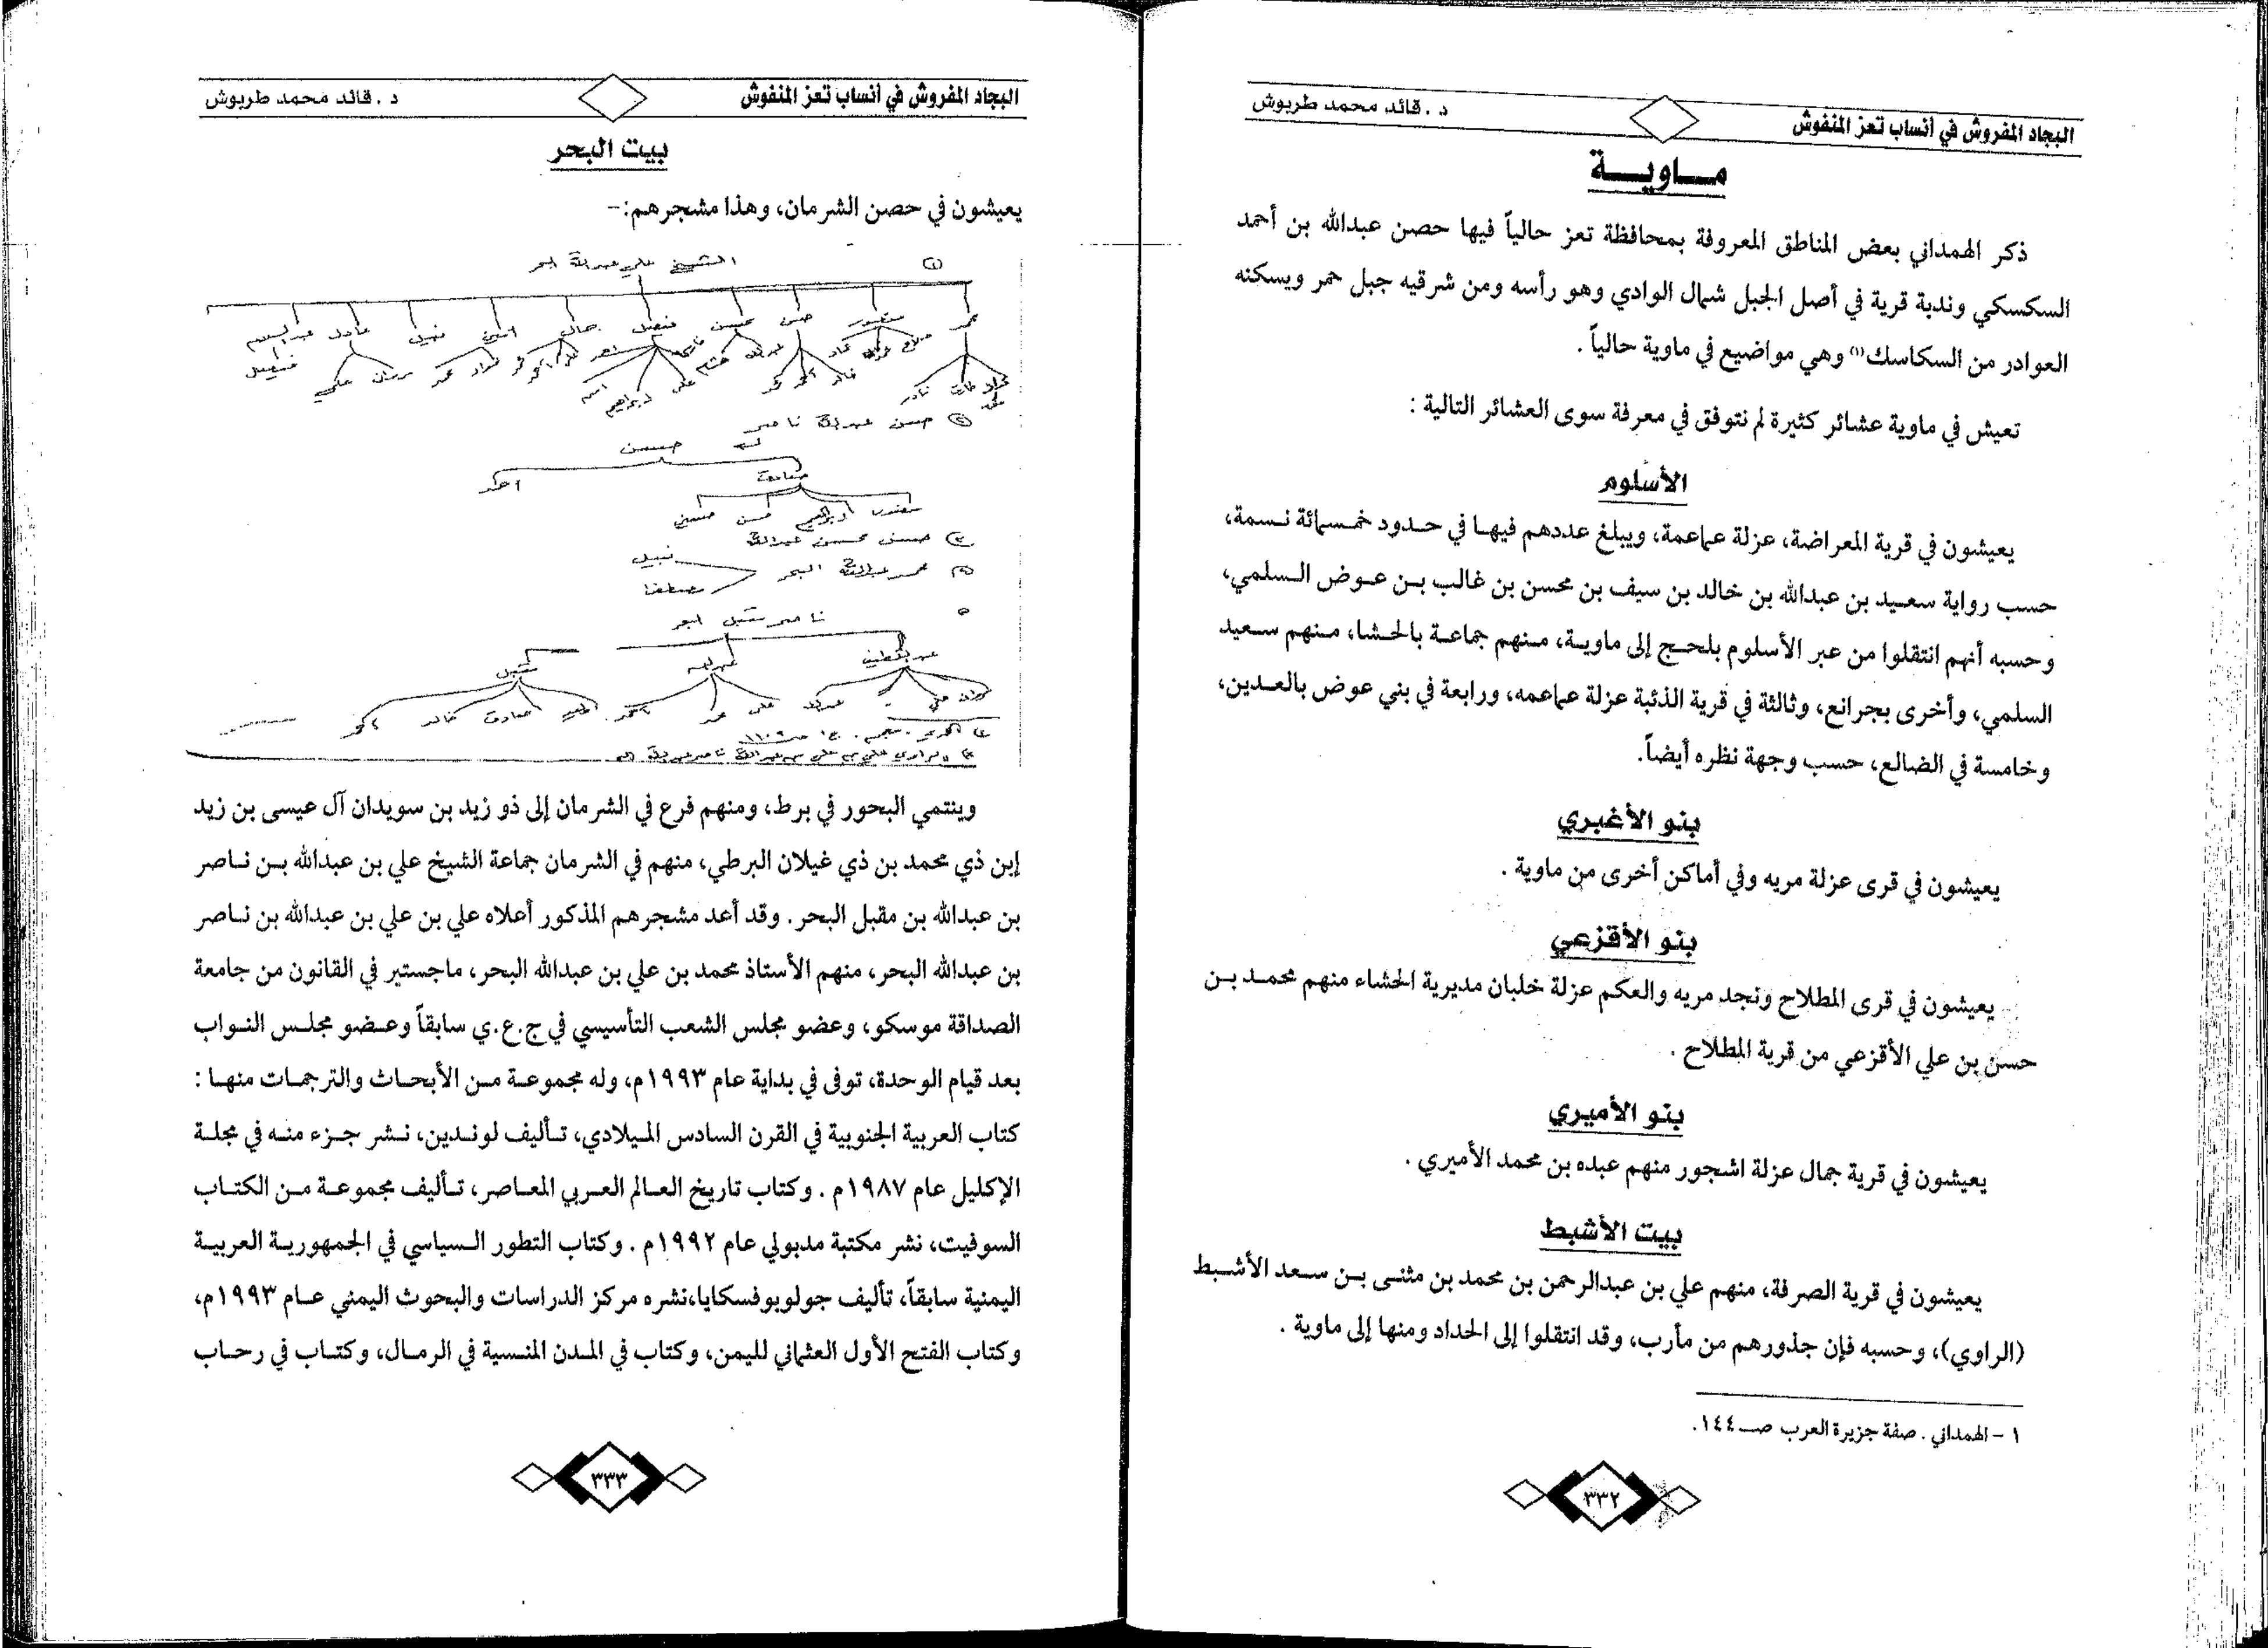 البجاد المفروش في أنساب تعز المنفوش
د. قائد محمد طربوش
ماوية
ذكر الهمداني بعض المناطق المعروفة بمحافظة تعز حالياً فيها حصن عبدالله بن أحمد
السكسكي وندبة قرية في أصل الجبل شمال الوادي وهو رأسه ومن شرقيه جبل حمر ويسكنه
العوادر من السكاسك(١) وهي مواضيع في ماوية حالياً .
تعيش في ماوية عشائر كثيرة لم نتوفق في معرفة سوى العشائر التالية :
الأسلوم
يعيشون في قرية المعراضة، عزلة عماعمة، ويبلغ عددهم فيها في حدود خمسمائة نسمة،
حسب رواية سعيد بن عبدالله بن خالد بن سيف بن محسن بن غالب بن عوض السلمي،
وحسبه أنهم انتقلوا من عبر الأسلوم بلحج إلى ماوية، منهم جماعة بالحشا، منهم سعيد
السلمي، وأخرى بجرانع، وثالثة في قرية الذئبة عزلة عماعمه، ورابعة في بني عوض بالعدين،
وخامسة في الضالع، حسب وجهة نظره أيضاً.
بنو الأغبري
يعيشون في قرى عزلة مريه وفي أماكن أخرى من ماوية .
بنو الأقزعي
يعيشون في قرى المطلاح ونجد مريه والعكم عزلة خلبان مديرية الحشاء منهم محمد بن
حسن بن علي الأقزعي من قرية المطلاح .
بنو الأميري
يعيشون في قرية جمال عزلة اشجور منهم عبده بن محمد الأميري .
بيت الأشبط
يعيشون في قرية الصرفة، منهم علي بن عبدالرحمن بن محمد بن مثنى بن سعد الأشبط
(الراوي)، وحسبه فإن جذورهم من مأرب، وقد انتقلوا إلى الحداد ومنها إلى ماوية .
١ - الهمداني . صفة جزيرة العرب صـ ١٤٤.
٣٣٢
البجاد المفروش في أنساب تعز المنفوش
د. قائد محمد طربوش
بيت البحر
يعيشون في حصن الشرمان، وهذا مشجرهم:-
الشيخ علي عبدالله البحر
منصور حسن محسن فيصل امين نبيل عادل
حسن عبدالله ناصر
حسن
احمد
ابراهيم حسن
حسن محسن عبدالله
محمد عبدالله البحر
نبيل
ناصر مقبل البحر
عبداللطيف
مقبل
علي محمد صادق خالد
وينتمي البحور في برط، ومنهم فرع في الشرمان إلى ذو زيد بن سويدان آل عيسى بن زيد
إبن ذي محمد بن ذي غيلان البرطي، منهم في الشرمان جماعة الشيخ علي بن عبدالله بن ناصر
بن عبدالله بن مقبل البحر. وقد أعد مشجرهم المذكور أعلاه علي بن علي بن عبدالله بن ناصر
بن عبدالله البحر، منهم الأستاذ محمد بن علي بن عبدالله البحر، ماجستير في القانون من جامعة
الصداقة موسكو، وعضو مجلس الشعب التأسيسي في ج.ع.ي سابقاً وعضو مجلس النواب
بعد قيام الوحدة، توفى في بداية عام ١٩٩٣م، وله مجموعة من الأبحاث والترجمات منها :
كتاب العربية الجنوبية في القرن السادس الميلادي، تأليف لوندين، نشر جزء منه في مجلة
الإكليل عام ١٩٨٧م . وكتاب تاريخ العالم العربي المعاصر، تأليف مجموعة من الكتاب
السوفيت، نشر مكتبة مدبولي عام ١٩٩٢م . وكتاب التطور السياسي في الجمهورية العربية
اليمنية سابقاً، تأليف جولوبوفسكايا،نشره مركز الدراسات والبحوث اليمني عام ١٩٩٣م،
وكتاب الفتح الأول العثماني لليمن، وكتاب في المدن المنسية في الرمال، وكتاب في رحاب
٣٣٣